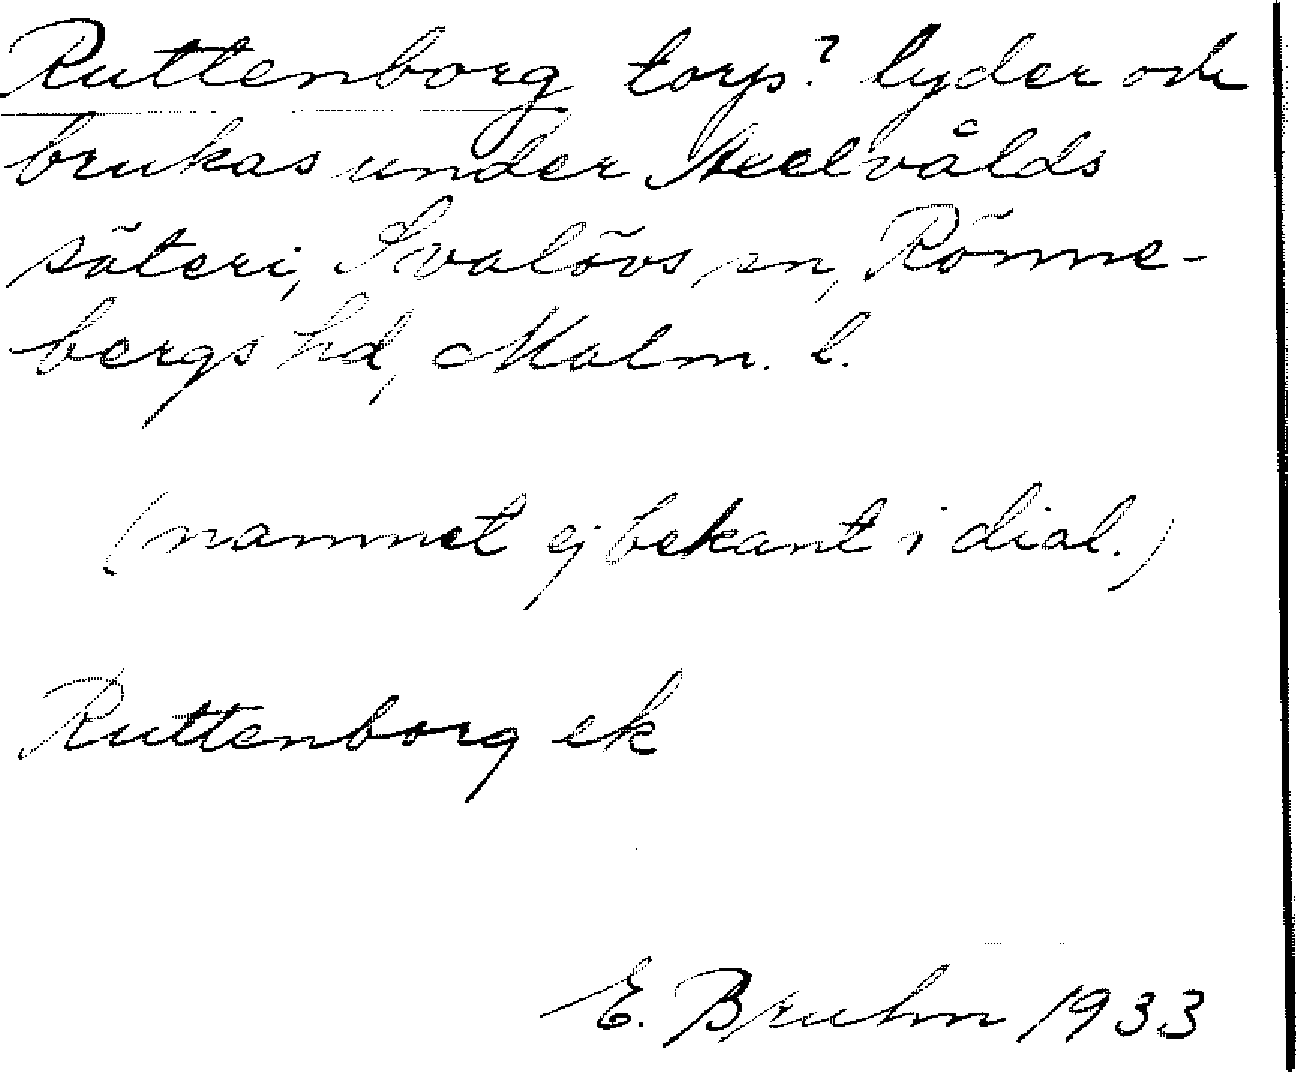 Ruttenborg torp? lyder och
brukas under
säteri, Svalövs sn, Rönne-
bergs hd, Malm. l.
(namnet ej bekant i dial.)
Ruttenborg ek
E. Bruhn 1933